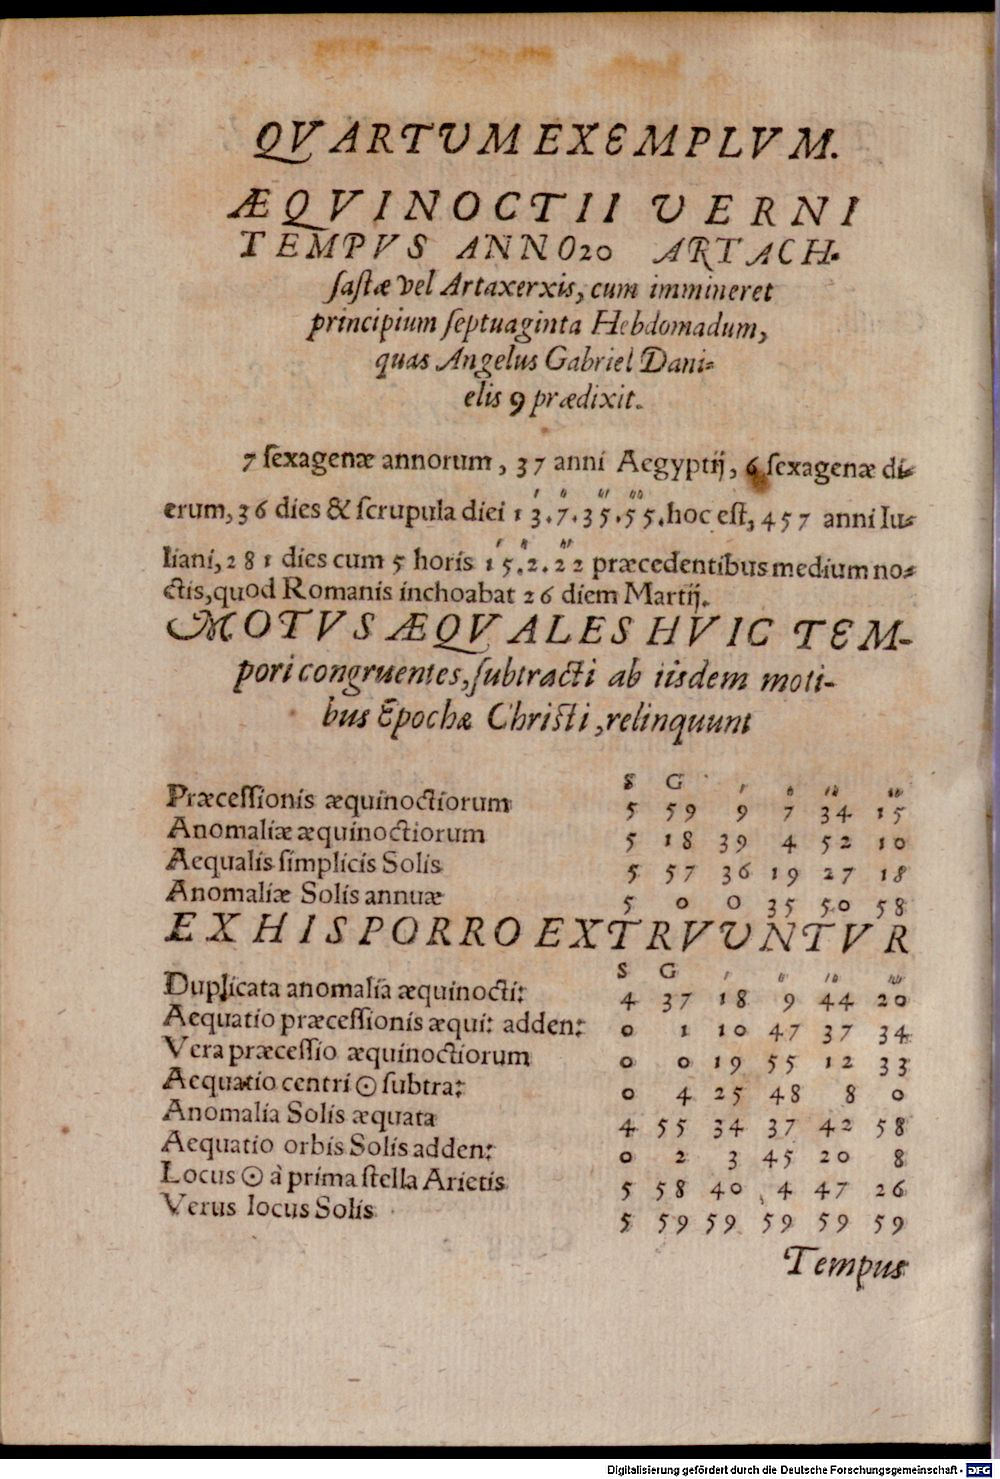 QVARTVM EXEMPLVM.
ÆQVINOCTII VERNI
TEMPVS ANNO 20 ARTACH-
ſaſtæ vel Artaxerxis, cum immineret
principium ſeptuaginta Hebdomadum,
quas Angelus Gabriel Dani-
elis 9 prædixit.
7 ſexagenæ annorum, 37 anni Aegyptij, 6 ſexagenæ di-
erum, 36 dies & ſcrupula diei 13. 7. 35. 55. hoc eſt, 457 anni Iu-
liani, 281 dies cum 5 horis 15. 2. 22 præcedentibus medium no-
ctis, quod Romanis inchoabat 26 diem Martij.
MOTVS ÆQVALES HVIC TEM-
pori congruentes, ſubtracti ab iiſdem moti-
bus Epochæ Chriſti, relinquunt
S G ′ ″ ‴ ⁗
Præceſſionis æquinoctiorum 5 59 9 7 34 15
Anomaliæ æquinoctiorum 5 18 39 4 52 10
Aequalis ſimplicis Solis 5 57 36 19 27 18
Anomaliæ Solis annuæ 5 0 0 35 50 58
EX HIS PORRO EXTRVVNTVR
S G ′ ″ ‴ ⁗
Duplicata anomalia æquinocti: 4 37 18 9 44 20
Aequatio præceſſionis æqui: adden: 0 1 10 47 37 34
Vera præceſſio æquinoctiorum 0 0 19 55 12 33
Aequatio centri ☉ ſubtra: 0 4 25 48 8 0
Anomalia Solis æquata 4 55 34 37 42 58
Aequatio orbis Solis adden: 0 2 3 45 20 8
Locus ☉ à prima ſtella Arietis 5 58 40 4 47 26
Verus locus Solis 5 59 59 59 59 59
Tempus
Digitalisierung gefördert durch die Deutsche Forschungsgemeinschaft - DFG